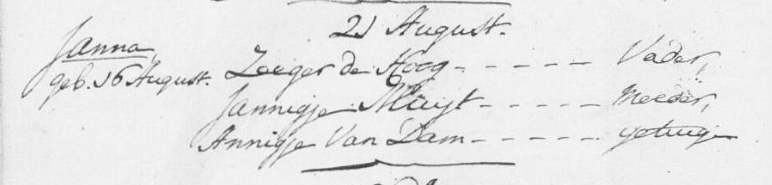 21 August.
Janna,
geb. 16 August. Zeeger de Hoog - - - - - Vader,
Jannigje Muijt - - - - - Moeder,
Annigje Van Dam - - - - - getuig